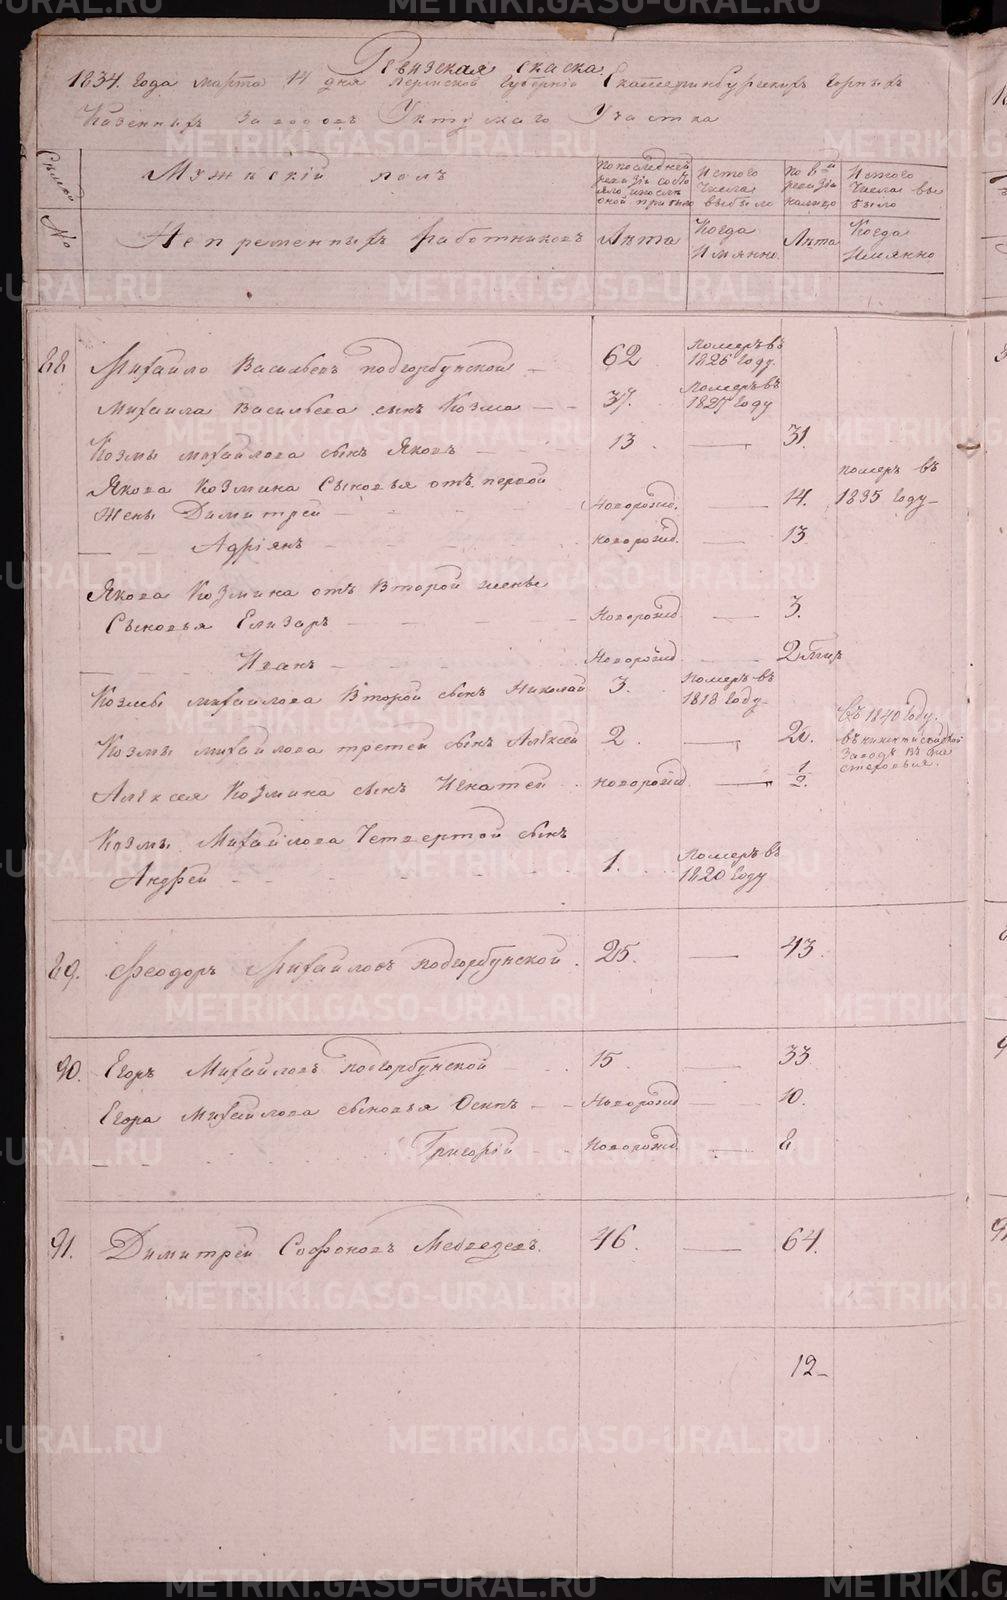 Ревизская скаска
1834. Года марта 14 дня Пермской Губернiи Екатеринбургскихъ горныхъ
Казенныхъ Заводовъ Уктускаго Участка
№
Мужескiй полъ
По последней ревизiи состояло и после оной прибыло
Истого числа выбыло
По 8й ревизiи налицо
Истого числа выбыло
Непременныхъ работниковъ
Лета
Когда имянно
Лета
Когда имянно
88 Михайло Васильевъ подгорбунской 62 Померъ въ 1826 году.
Михайла Васильева сынъ Козма 37. Померъ въ 1827 году
Козмы михайлова сынъ Яковъ 13 31
Якова Козмина Сыновья отъ первой
жены Димитрей Новорожд. 14. померъ въ 1835 году
Адрiянъ новорожд. 13
Якова Козмина отъ второй жены
Сыновья Елизаръ Новорожд 3.
Иванъ Новорожд 2
Козмы михайлова второй сынъ Николай 3. померъ въ 1818 году
Козмы михайлова третей сынъ Алексей 2 20. Въ 1840 году.
Алексея Козмина сынъ Игнатей новорожд 1/2.
Козмы Михайлова Четвертой сынъ
Андрей 1. Померъ въ 1820 году
89. Феодоръ Михайловъ подгорбунской 25. 43
90. Егоръ Михайловъ подгорбунской 15 33
Егора Михайлова сыновья Осипъ Новорожд 10.
Григорiй Новорожд 8
91. Димитрей Софоновъ Медведевъ. 46. 64.
12
METRIKI.GASO-URAL.RU